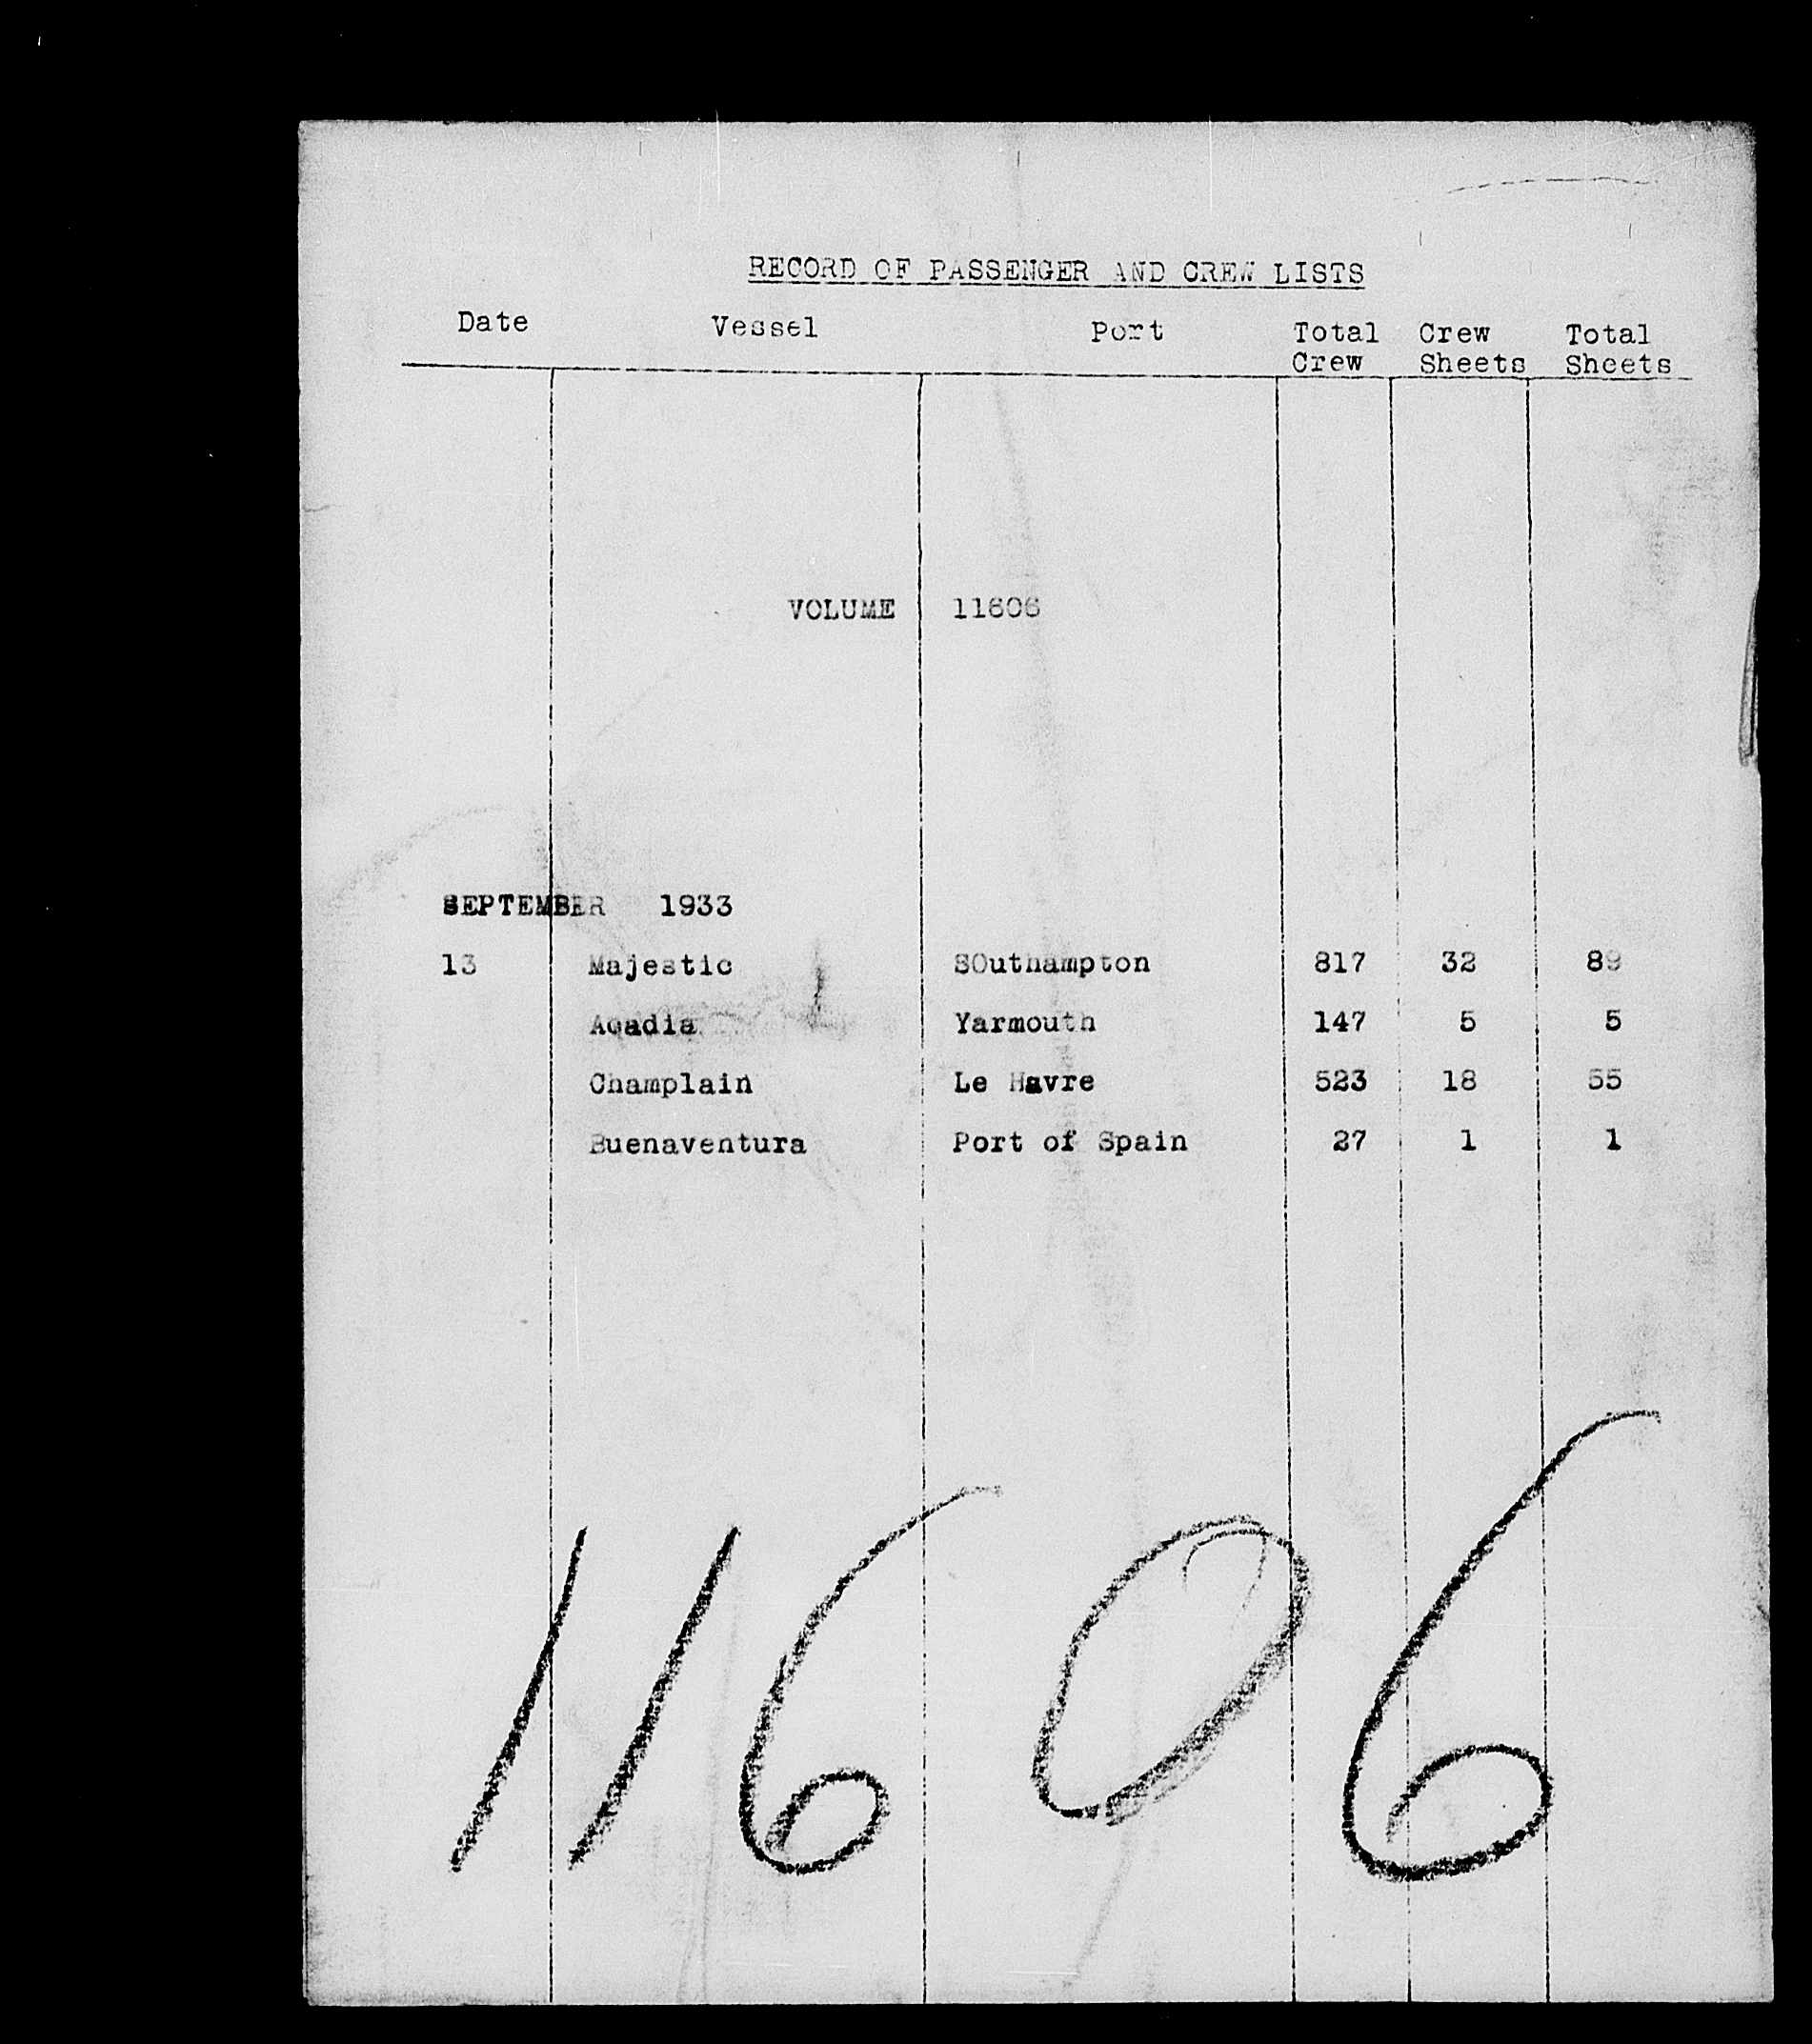 RECORD OF PASSENGER AND CREW LISTS
Date Vessel Port Total Crew Total
Crew Sheets Sheets
VOLUME 11606
SEPTEMBER 1933
13 Majestic SOuthampton 817 32 89
Acadia Yarmouth 147 5 5
Champlain Le Havre 523 18 55
Buenaventura Port of Spain 27 1 1
11606